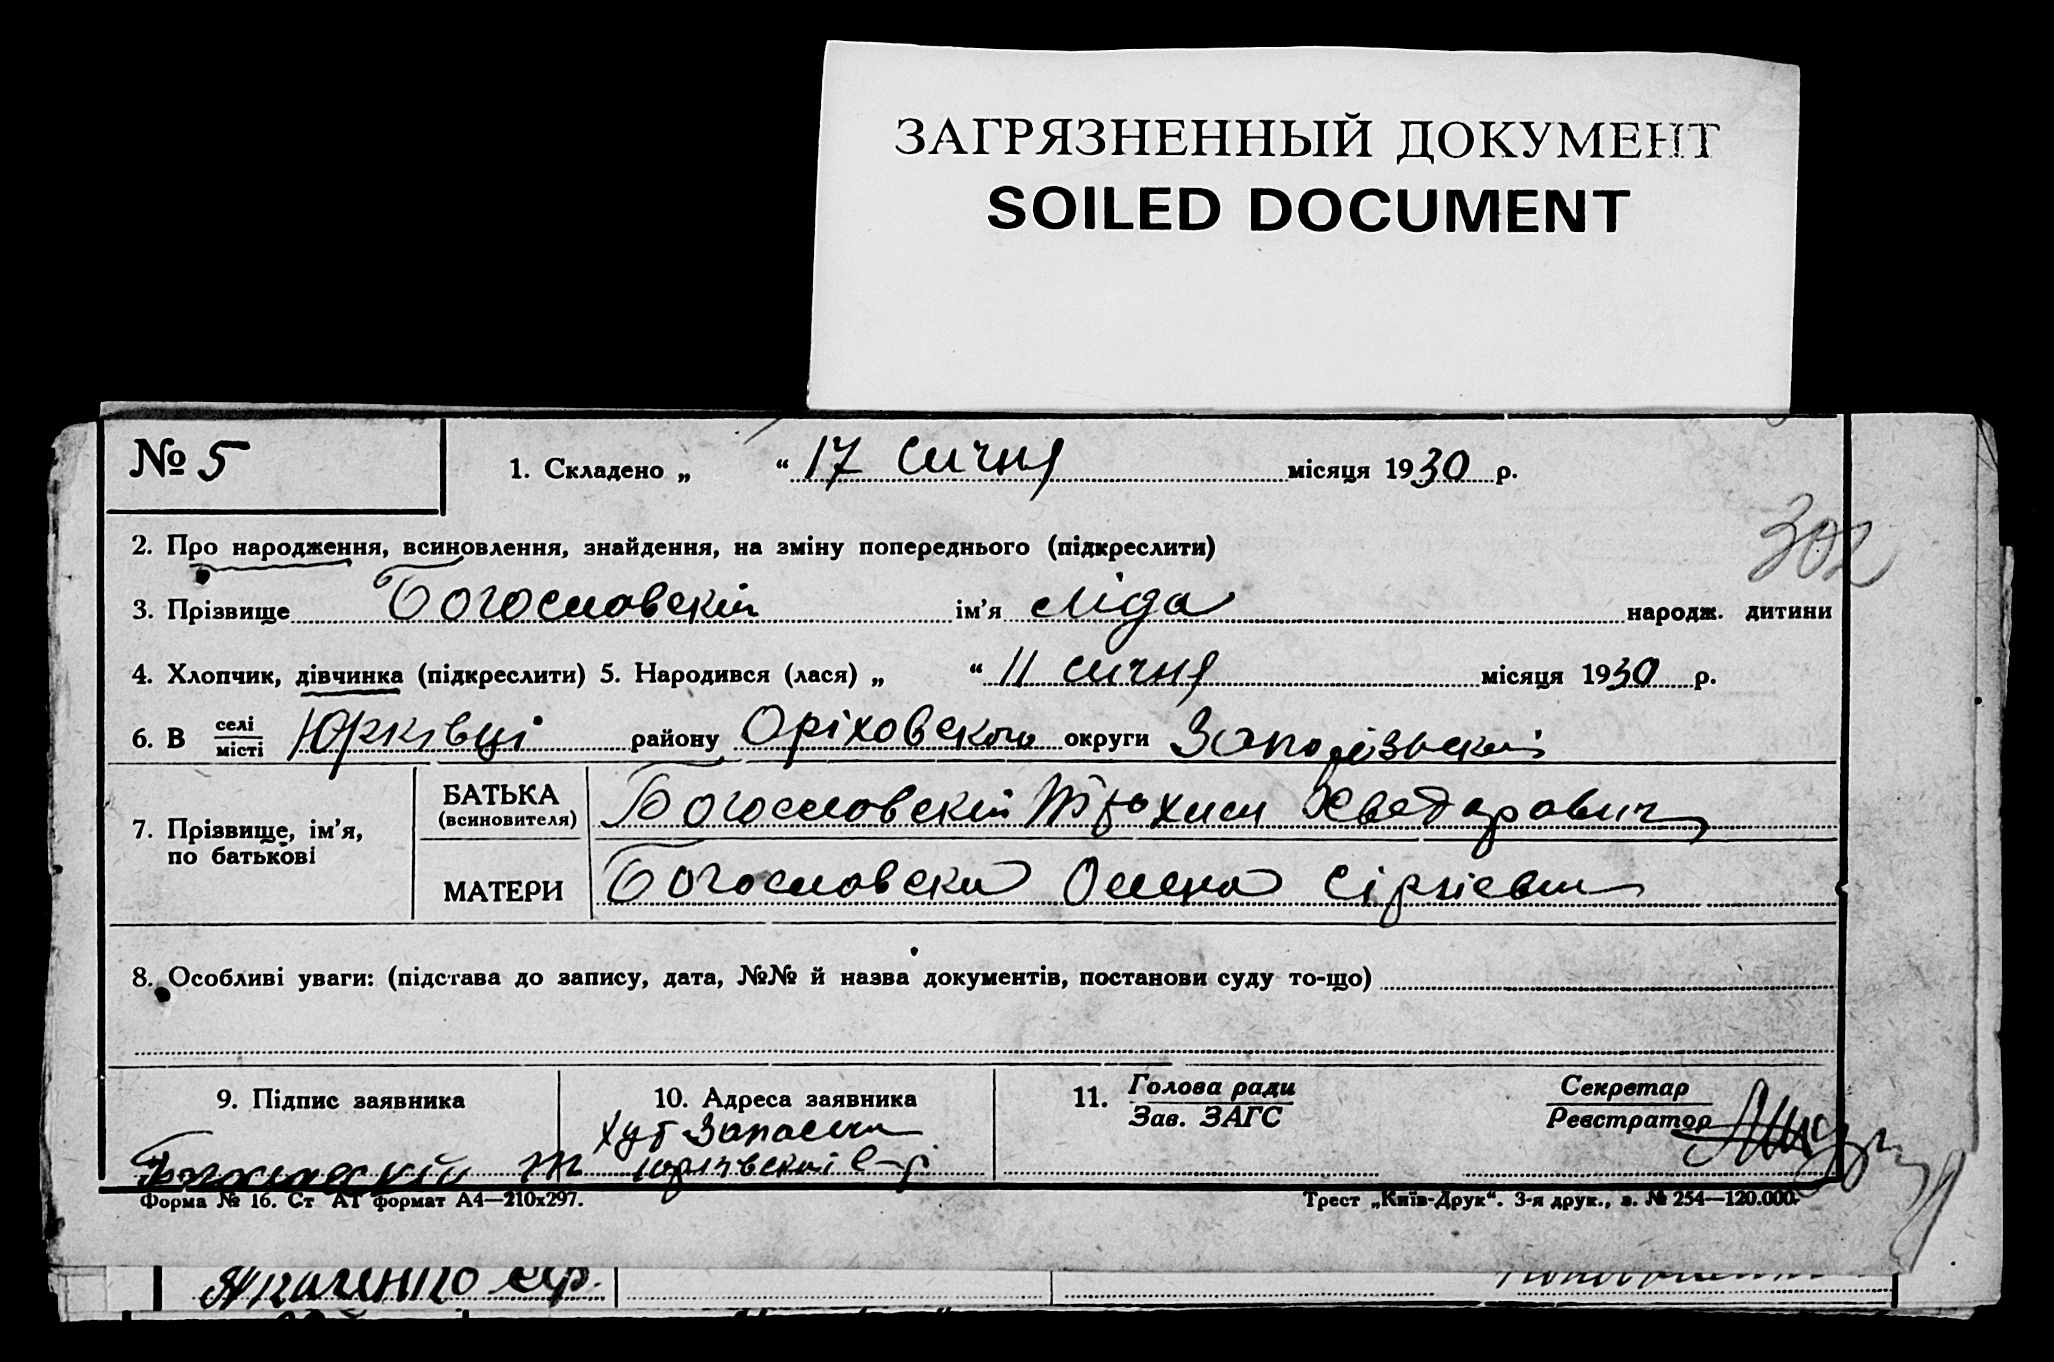 ЗАГРЯЗНЕННЫЙ ДОКУМЕНТ
SOILED DOCUMENT
№ 5
1. Складено „ “ 17 січня місяця 1930 р.
302
2. Про народження, всиновлення, знайдення, на зміну попереднього (підкреслити)
3. Прізвище Богословскій ім’я Ліда народж. дитини
4. Хлопчик, дівчинка (підкреслити) 5. Народився (лася) „ “ 11 січня місяця 1930 р.
6. В селі місті Юрківці району Оріховского округи
7. Прізвище, ім’я, по батькові
БАТЬКА (всиновителя) Богословскій
МАТЕРИ Богословска Олена
8. Особливі уваги: (підстава до запису, дата, №№ й назва документів, постанови суду то-що)
9. Підпис заявника
10. Адреса заявника
11. Голова ради Зав. ЗАГС
Секретар Реєстратор
хут
Богословскій
Форма № 16. Ст АТ формат А4—210х297.
Трест „Київ-Друк“. 3-я друк., з. № 254—120.000.